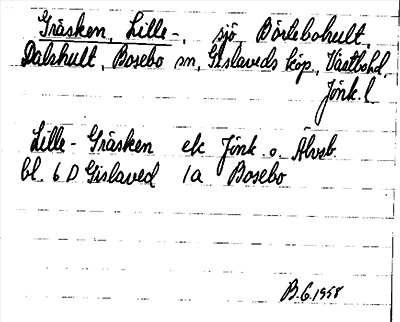 Gräsken, Lille-, sjö Börlebohult,
Dalshult, Bosebo sn, Gislaveds köp, Västbohd,
Jönk. l.
Lille-Gräsken ek Jönk. o. Älvsb.
bl. 6 D Gislaved 1a Bosebo
B.G. 1958